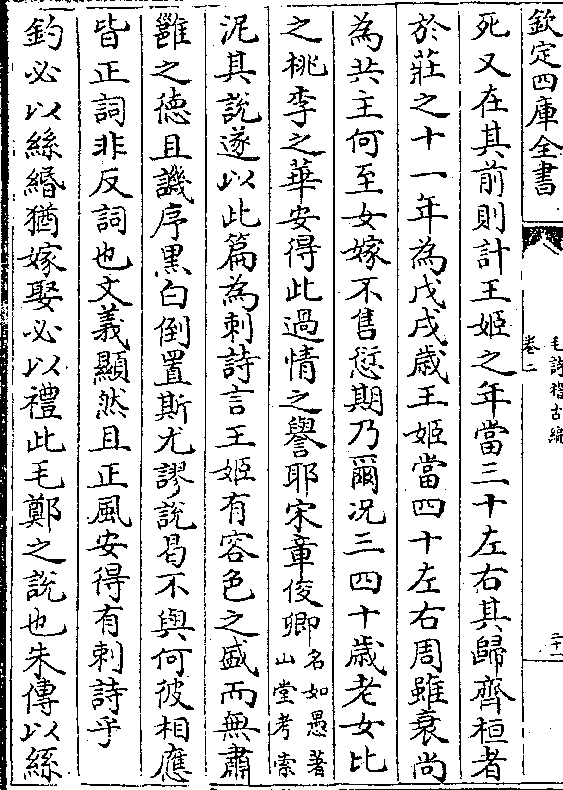 欽定四庫全書
毛詩稽古編
卷二
二十一
死又在其前則計王姬之年當三十左右其歸齊桓者
於莊之十一年為戊戌歳王姬當四十左右周雖衰尚
為共主何至女嫁不售愆期乃爾况三四十歳老女比
之桃李之華安得此過情之譽耶宋章俊卿名如愚著山堂考索
泥其說遂以此篇為刺詩言王姬有容色之盛而無肅
雝之徳且譏序黒白倒置斯尤謬說曷不與何彼相應
皆正詞非反詞也文義顯然且正風安得有刺詩乎
釣必以絲緡猶嫁娶必以禮此毛鄭之說也朱傳以絲